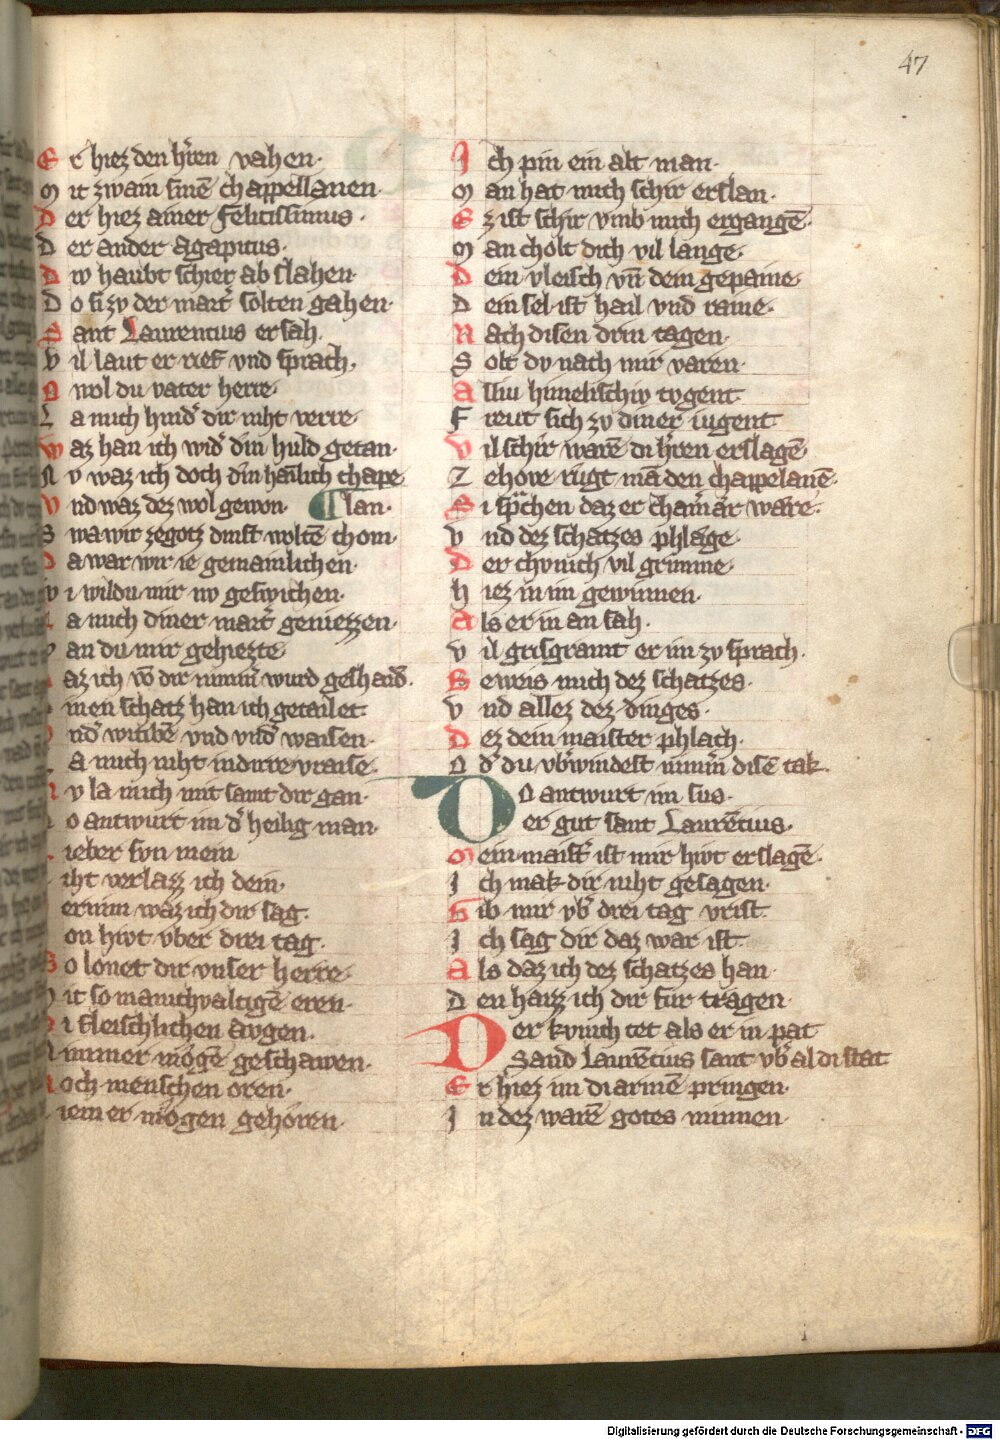 47
Er hiez den h̄ren vahen·
Mit zwain sinē chappellanen·
Der hiez ainer Felicissimus·
Der ander Agapitus·
Dw haubt schier ab slahen·
Do si zv der mart̄ solten gahen·
Sant Laurencius ersah·
Vil laut er rief vnd sprach·
O wol du vater herre·
La mich hind̄ dir niht verre·
Waz han ich wid̄ din huld getan·
Nv waz ich doch din haīlich chape
Vnd waz dez wol gewon· ¶lan·
Swa wir zegotz dinst woltē chom·
Da war wir ie gemainlichen·
Wi wildu mir nv geswichen·
La mich diner mart̄ geniezzen·
an du mir gehiezte
az ich vō dir nimm̄ wurd geshaid̄·
inen schatz han ich getailet·
nd̄ witibē vnd vnd̄ waisen·
a mich niht in dirre vraise·
Nv la mich mit samt dir gan·
o antwurt im d̄ heilig man·
ieber svn mein
iht verlazz ich dein·
ernim waz ich dir sag·
on hivt vber drei tag·
So lonet dir vnser herre·
it so manichvaltigē eren·
i fleischlichen avgen·
immer mögē geschawen·
och menschen oren·
iemer mögen gehören·
Ich pin ein alt man·
Man hat mich schir erslan·
Ez ist schir vmb mich ergangē·
Man cholt dich vil lange·
Dein vleisch vn̄ dein gepaine·
Dein sel ist hail vnd raine·
Nach disen drin tagen·
Solt dv nach mir varen·
Alliu himelischiv tvgent
Freut sich zv diner iugent
Vil schir warē di h̄ren erslagē·
Zehove rügt mā den chappelanē·
Si sprchen daz er chamār wäre·
Vnd dez schatzes phläge·
Der chvnich vil grimme·
Hiez in im gewinnen·
Als er in an sah·
Vil grisgramt er im zv sprach·
Beweis mich dez schatzes·
Vnd allez dez dinges·
Dez dein maister phlach·
Od̄ du vb̄windest nimm̄ disē tak·
DO antwurt im sus·
er gut sant Laurēcius·
Mein maist̄ ist mir hivt erslagē·
Ich mak dir niht gesagen·
Gib mir vb̄ drei tag vrist·
Ich sag dir daz war ist·
Als daz ich dez schatzes han·
Den haizz ich dir für tragen·
Der kvnich tet als er in pat
Sand Laurēcius sant vb̄ al di stat
Er hiez im di armē pringen·
In dez warē gotes minnen·
Digitalisierung gefördert durch die Deutsche Forschungsgemeinschaft - DFG